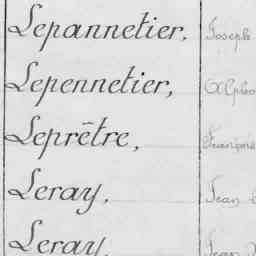 Lepannetier, Joseph
Lepennetier,
Leprêtre,
Leray, Jean
Leray, Jean